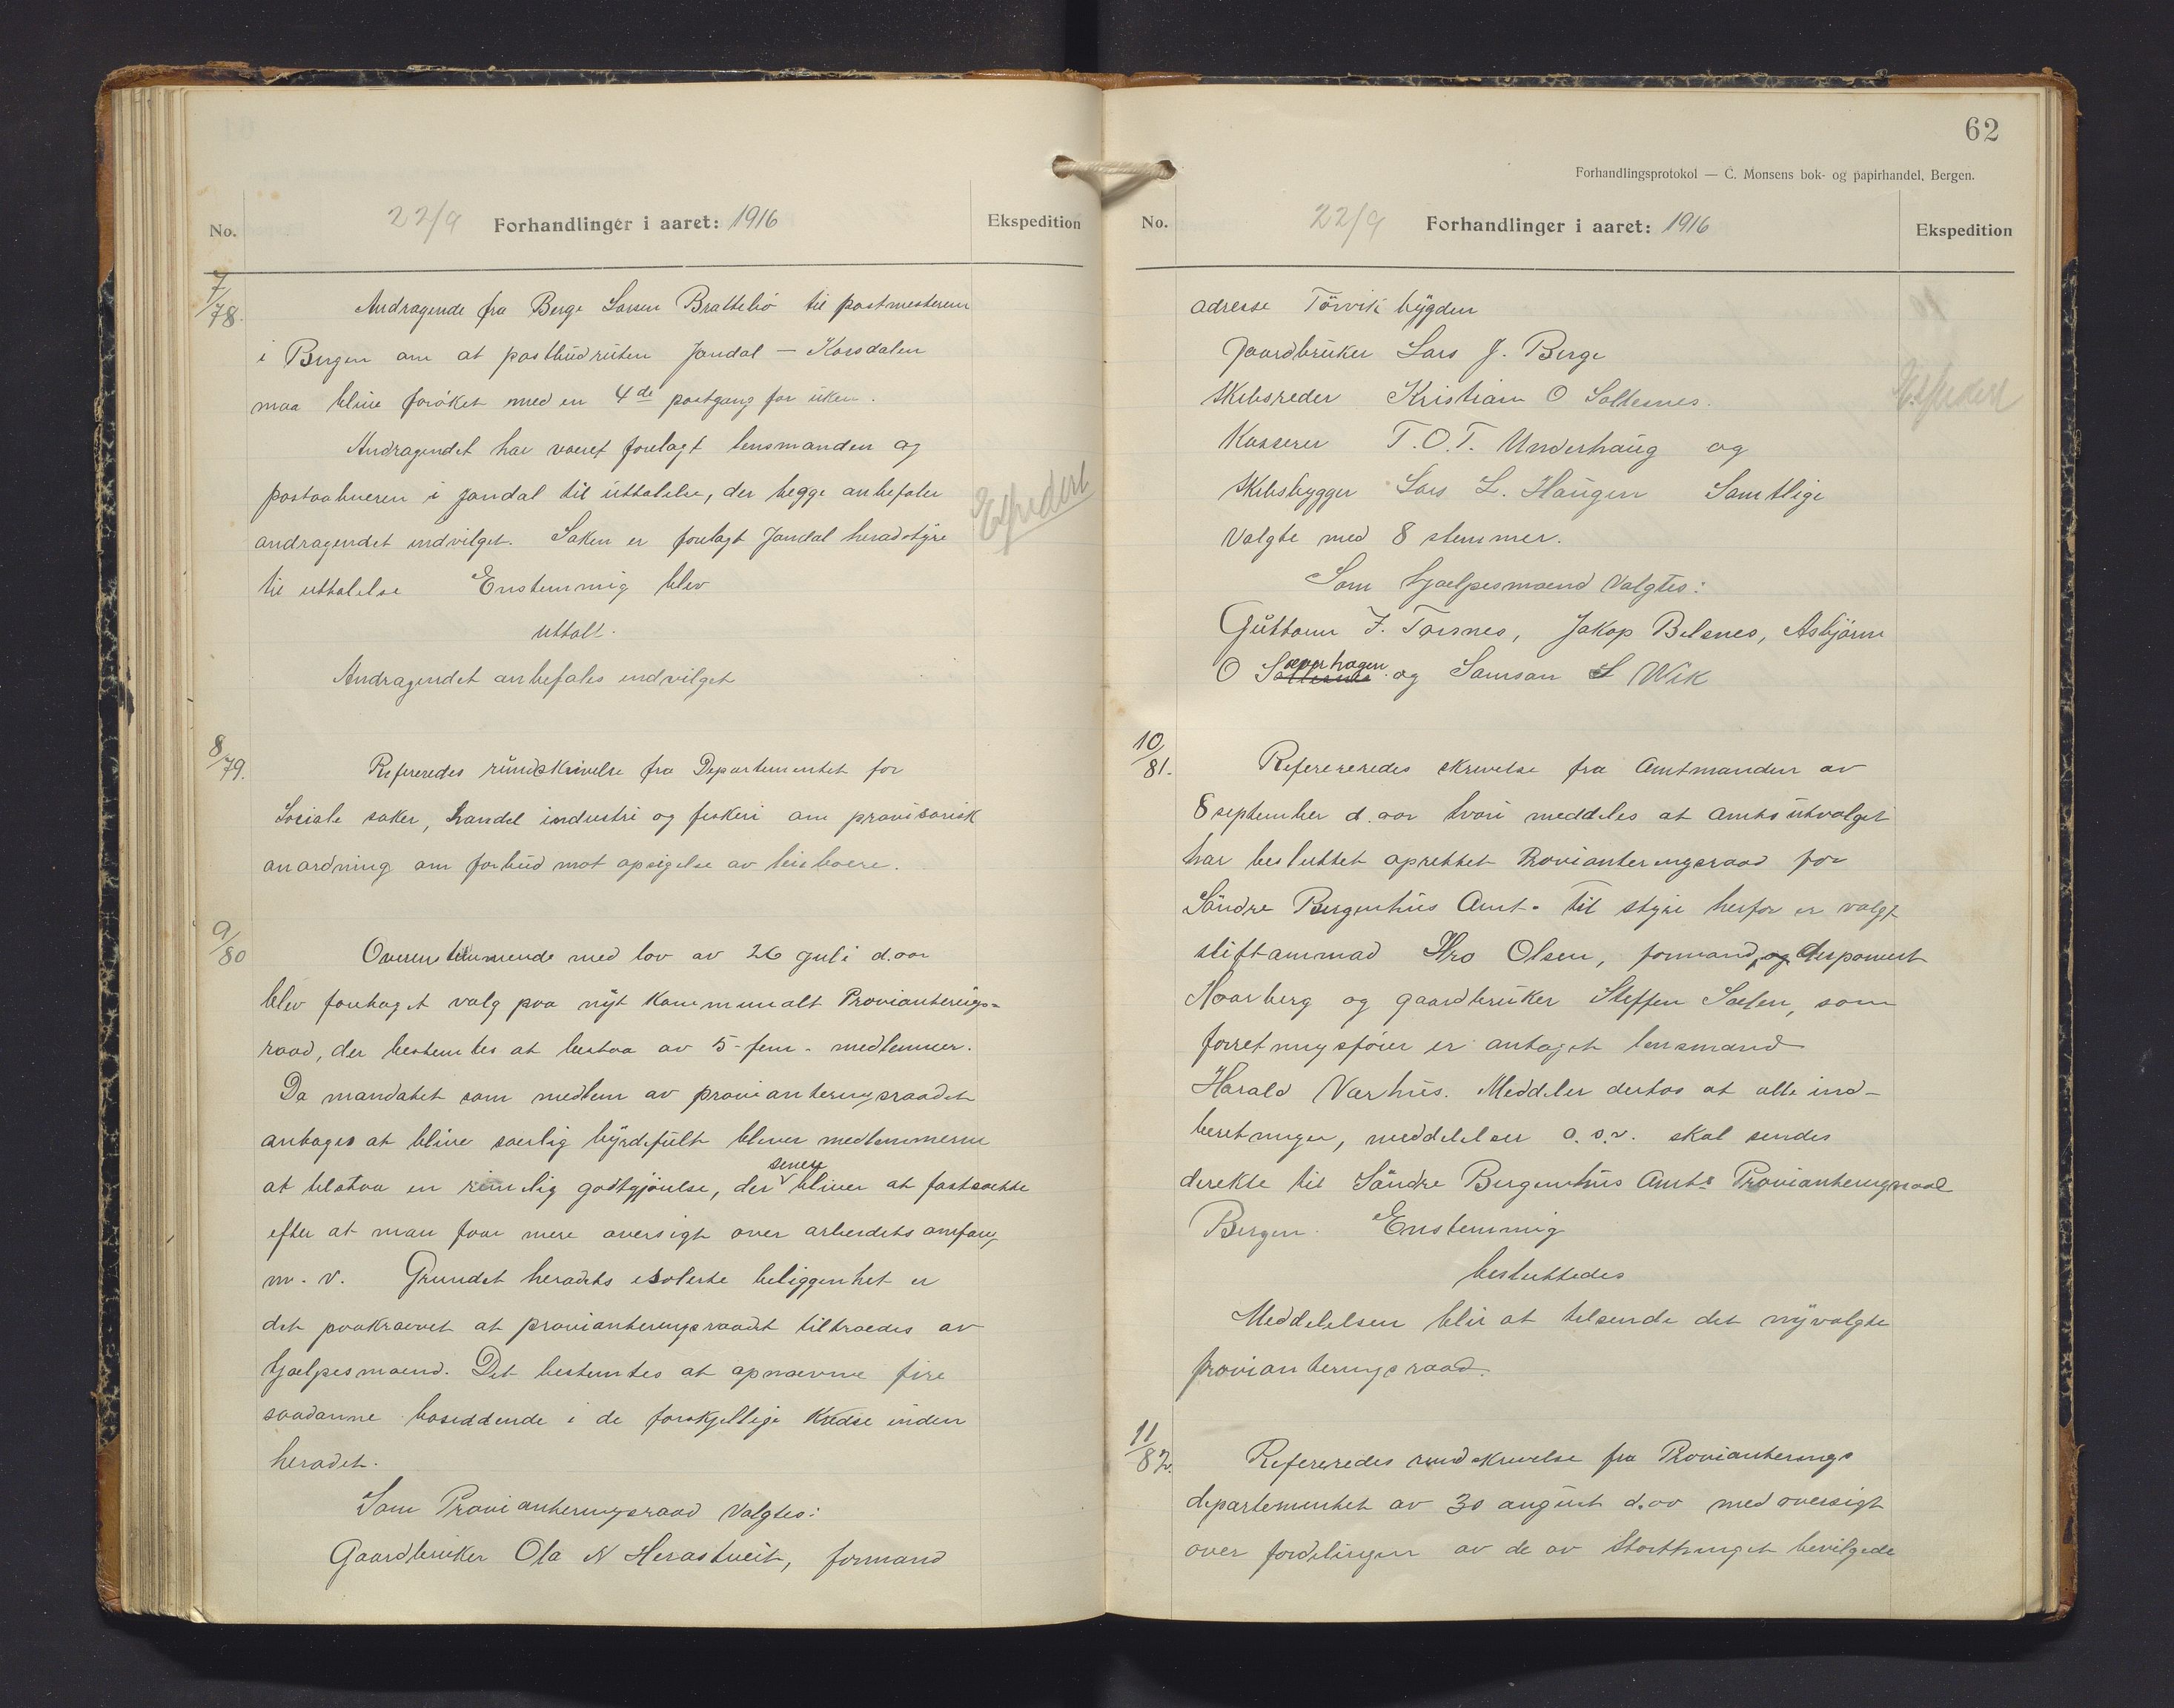 No.
22/9 Forhandlinger i aaret: 1916
Ekspedition
7/78.
Andragende fra Berge Larsen Brattebø til postmesteren
i Bergen om at postbudruten Jondal — Korsdalen
maa blive forøket med en 4de postgang for uken.
Andragendet har været forelagt lensmanden og
postaabneren i Jondal til uttalelse, der begge anbefaler
andragendet indvilget. Saken er forelagt Jondal heradstyre
til uttalelse Enstemmig blev
uttalt.
Andragendet anbefales indvilget
Ekspedert
8/79.
Refereredes rundskrivelse fra Departementet for
Sociale saker, handel industri og fiskeri om provisorisk
anordning om forbud mot opsigelse av leieboere.
9/80
Overenstemmende med lov av 26 juli d. aar
blev foretaget valg paa nyt kommunalt Provianterings=
raad, der bestemtes at bestaa av 5-fem- medlemmer.
Da mandatet som medlem av provianteringsraadet
antages at blive særlig byrdefult bliver medlemmerne
at tilstaa en rimelig godtgjørelse, der senere bliver at fastsætte
efter at man faar mere oversigt over arbeidets omfang
m. v. Grundet heradets isolerte beliggenhet er
det paakrævet at provianteringsraadet tiltrædes av
hjælpesmænd. Det bestemtes at opnævne fire
saadanne bosiddende i de forskjellige kredse inden
heradet.
Som Provianteringsraad valgtes:
Gaardbruker Ola N Herastveit, formand
62
Forhandlingsprotokol — C. Monsens bok- og papirhandel, Bergen.
No.
22/9 Forhandlinger i aaret: 1916
Ekspedition
adresse Tørvik bygden
Gaardbruker Lars J. Berge
Skibsreder Kristian O Solternes.
Kasserer T.O.T. Underhaug og
Skibsbygger Lars L. Haugen Samtlige
Valgte med 8 stemmer.
Som hjælpesmænd valgtes:
Guttorm J. Torsnes, Jakop Belsnes, Asbjørn
O Sæverhagen og Samson S Wik
Ekspedert
10/81.
Refereredes skrivelse fra Amtmanden av
8 september d. aar hvori meddeles at amtsutvalget
har besluttet oprettet Provianteringsraad for
Søndre Bergenhus Amt. Til styre herfor er valgt
stiftammad Hro Olsen, formand, og disponent
Haarberg og gaardbruker Steffen Sælen, som
forretningsfører er antaget lensmand
Harald Varhus. Meddeler dertos at alle ind-
beretninger, meddelelser o. s. v. skal sendes
direkte til Søndre Bergenhus Amts Provianteringsraad
Bergen. Enstemmig
besluttedes
Meddelelsen blir at tilsende det nyvalgte
provianteringsraad.
11/82.
Refereredes rundskrivelse fra Provianterings
departementet av 30 august d. aa med oversigt
over fordelingen av de av Stortinget bevilgede